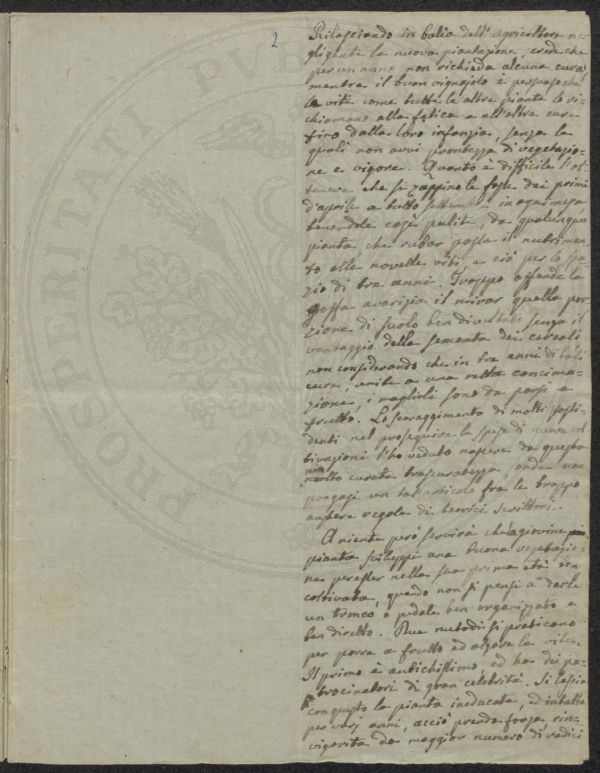 2
Rilasciando in balia dell'agricoltore ne-
gligente la nuova piantagione, crede che
per un anno non richieda alcuna cura
mentre il buon vignajolo è persuaso che
le viti come tutte le altre piante lo ri-
chiamano alla fatica e all'altre cure
fino dalla loro infanzia, senza le
quali non avvi prontezza di vegetazio-
ne e vigore. Quanto è difficile l'ot-
tenere che si zappino le fosse dai primi
d'aprile a tutto settembre in ogni mese
tenendole così pulite, da qualunque
pianta che rubar possa il nutrimen-
to alle novelle viti, e ciò per lo spa-
zio di tre anni. Troppo offende la
goffa avarizia il mirar quella por-
zione di suolo ben divettato senza il
vantaggio della sementa dei cereali
non considerando che in tre anni di tali
cure, unite a una retta concima-
zione, i maglioli sono da porsi a
frutto. Lo scoraggimento di molti possi-
denti nel proseguire le spese di nuove col-
tivazioni l'ho veduto nascere da questa
non
molto curata trascuratezza, onde non
pongasi un tale articolo fra le troppo
austere regole di teorici scrittori.
A niente però servirà che la giovine
pianta sviluppi una buona vegetazio-
ne per esser nella sua prima età ben
coltivata, quando non si pensi a darle
un tronco o pedale ben organizzato e
ben diretto. Due metodi si praticano
per porre a frutto ed alzare la vite.
Il primo è antichissimo, ed ha dei pa-
trocinatori di gran celebrità. Si lascia
con questo la pianta ineducata, ed intatta
per varj anni, acciò prenda forza, rin-
vigorita da maggior numero di radici